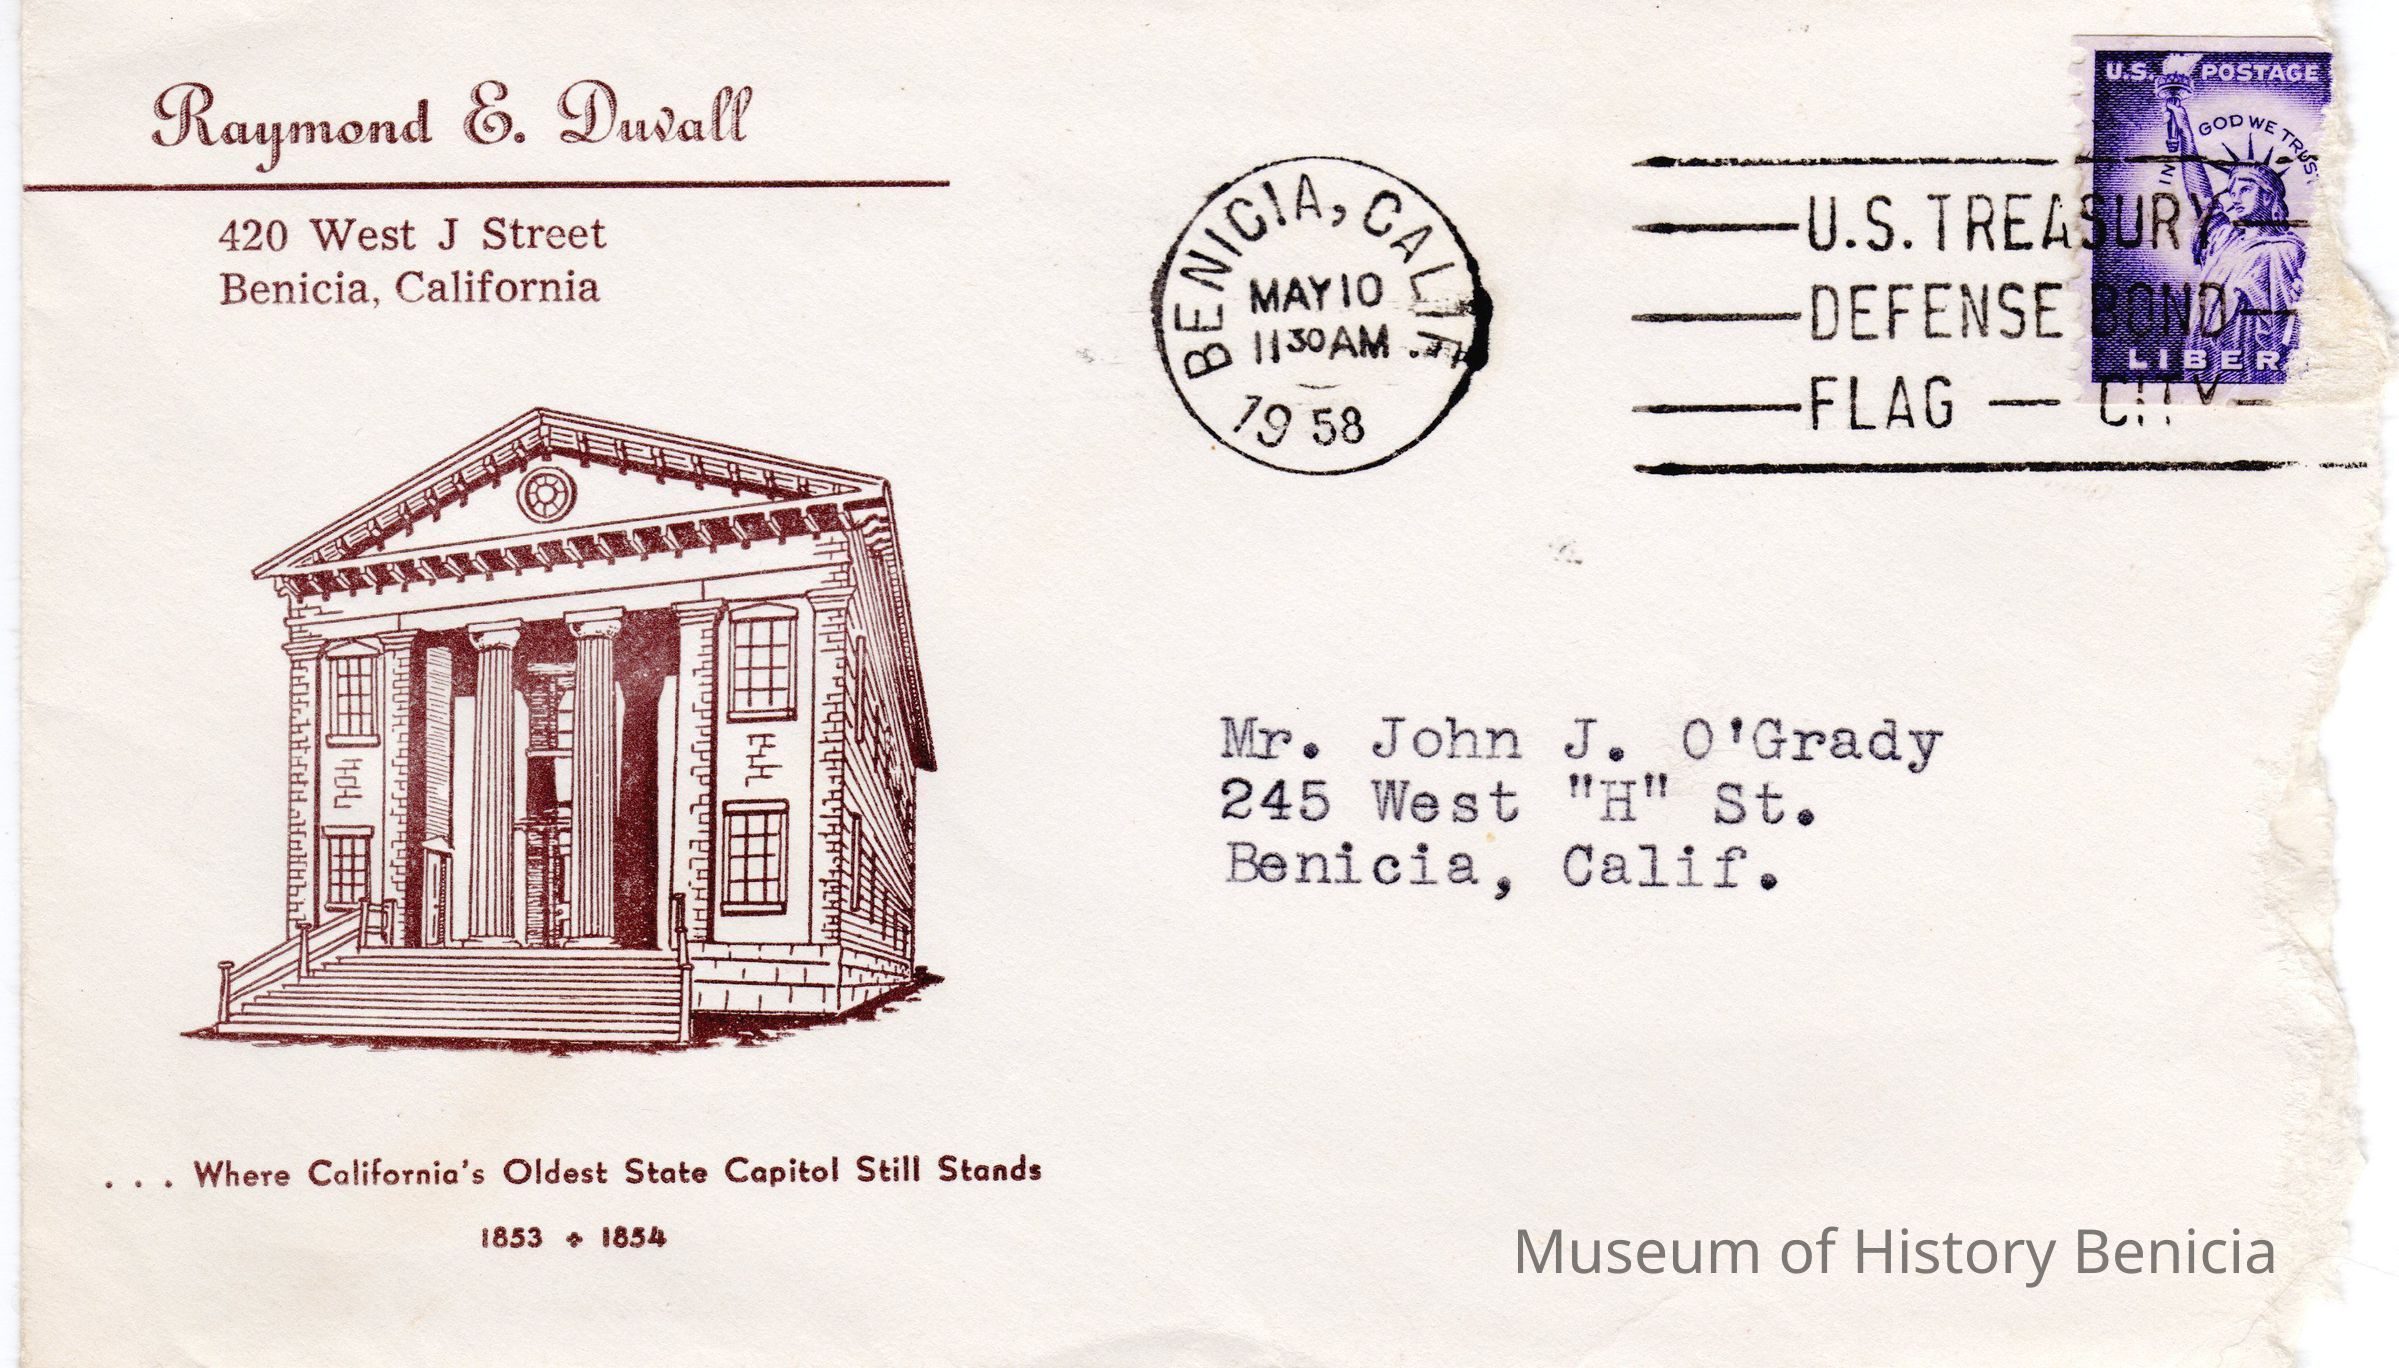 Raymond E. Duvall
420 West J Street
Benicia, California
BENICIA, CALIF.
MAY 10
11 30 AM
1958
U.S. TREASURY
DEFENSE BOND
FLAG — CITY
U.S. POSTAGE
IN GOD WE TRUST
LIBER
Mr. John J. O'Grady
245 West "H" St.
Benicia, Calif.
. . . Where California's Oldest State Capitol Still Stands
1853 ✤ 1854
Museum of History Benicia